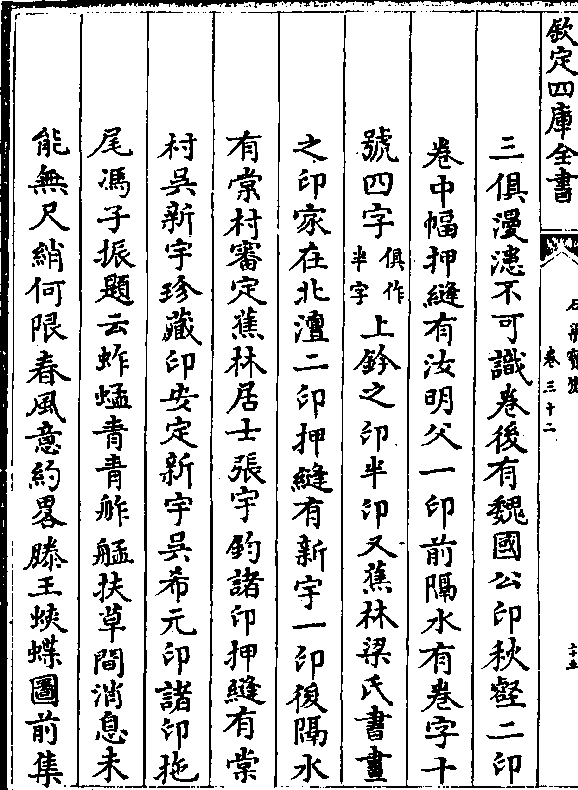 欽定四庫全書
石渠寶笈
卷三十二
三俱漫漶不可識卷後有魏國公印秋壑二印
卷中幅押縫有汝明父一印前隔水有卷字十
號四字俱作半字上鈐之印半印又蕉林梁氏書畫
之印家在北潭二印押縫有新宇一印後隔水
有棠村審定蕉林居士張宇鈞諸印押縫有棠
村吳新宇珍藏印安定新宇吳希元印諸印拖
尾馮子振題云蚱蜢青青舴艋扶草間消息未
能無尺綃何限春風意約畧滕王蛺蝶圖前集